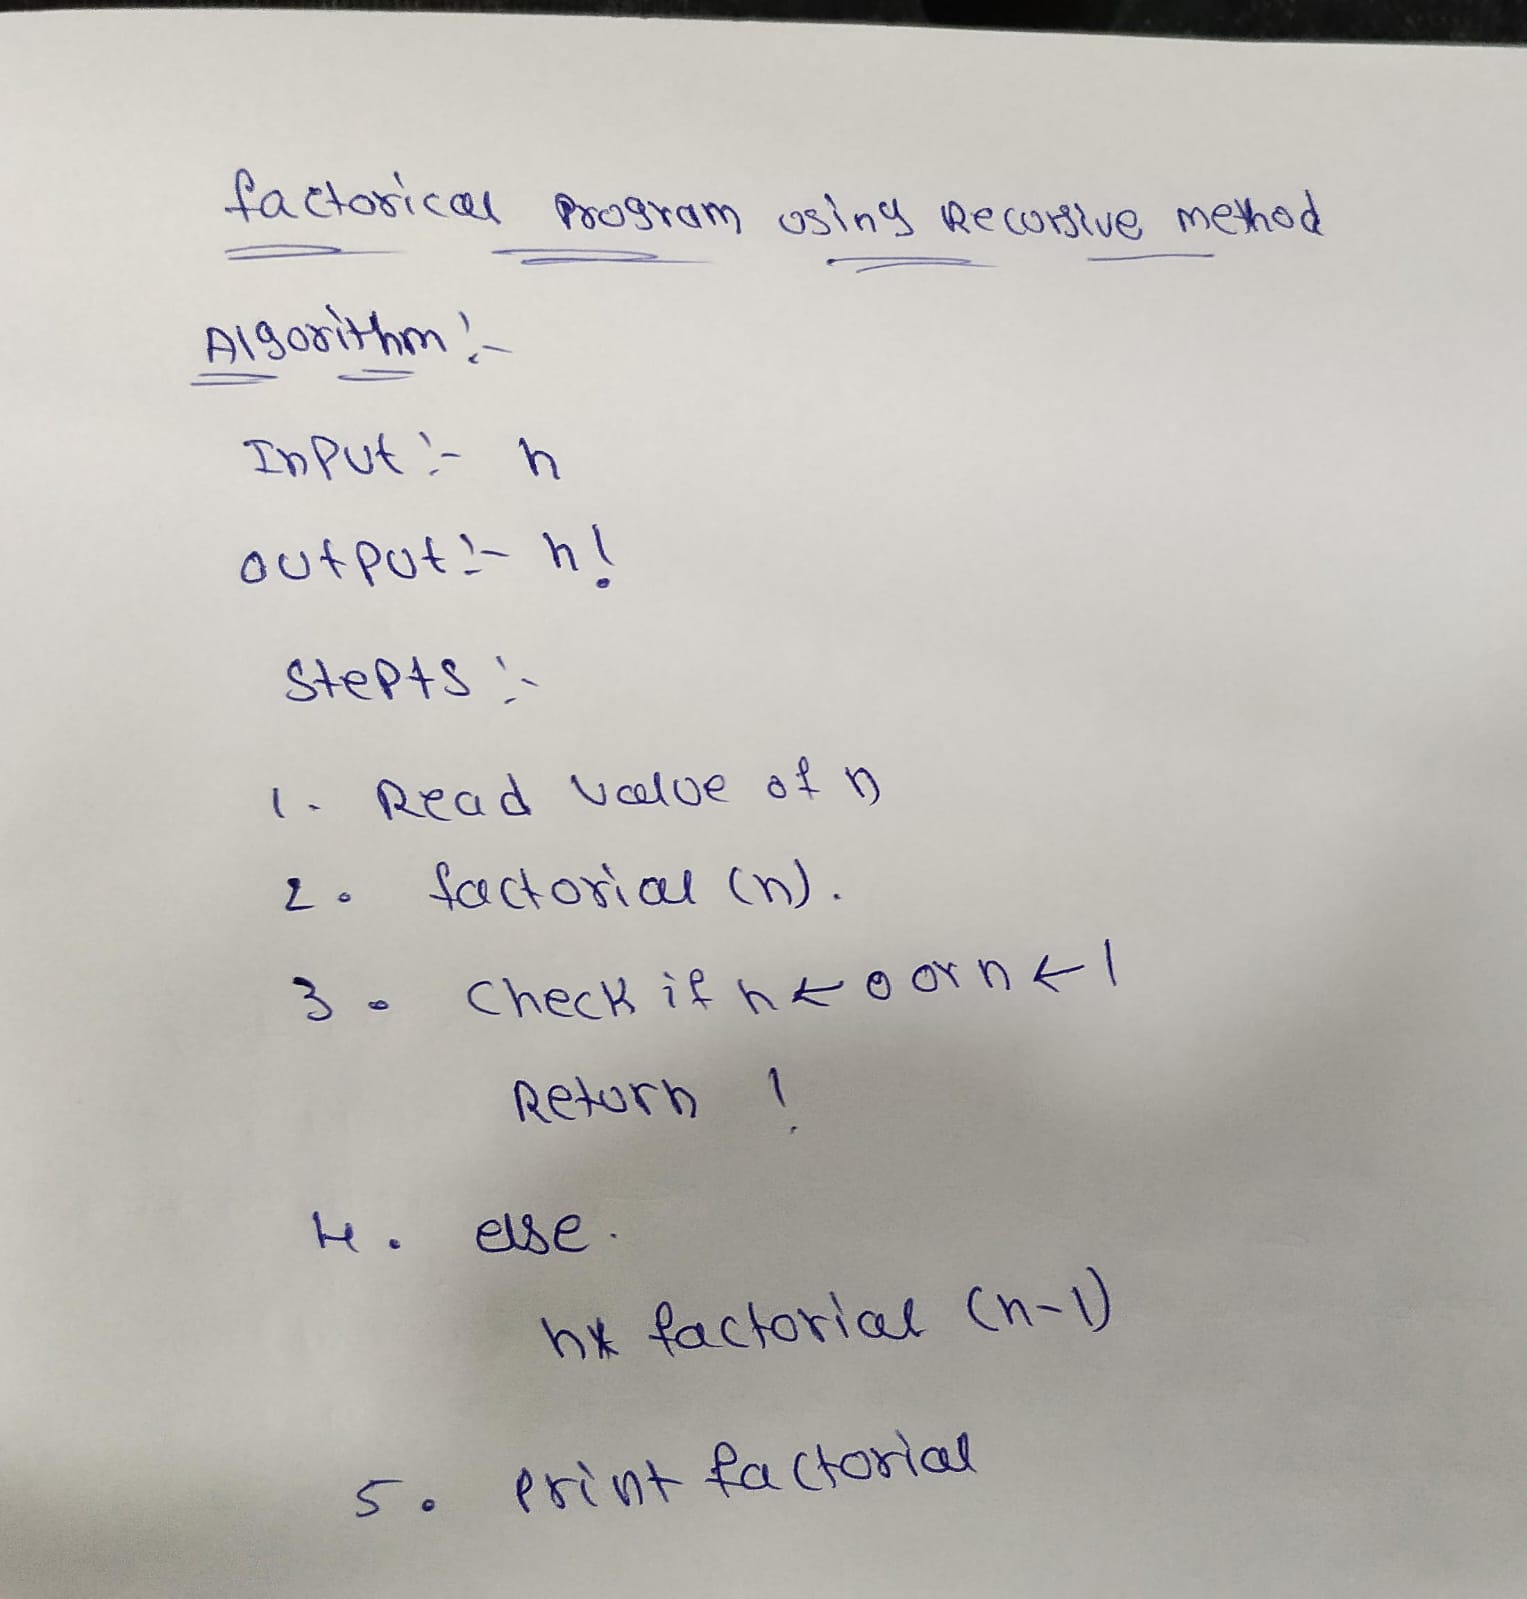 factorical Program using Recursive method
Algorithm :-
Input :- n
output :- n!
Stepts :-
1. Read value of n
2. factorial (n).
3. Check if n ← 0 or n ← 1
Return !
4. else.
n* factorial (n-1)
5. Print factorial